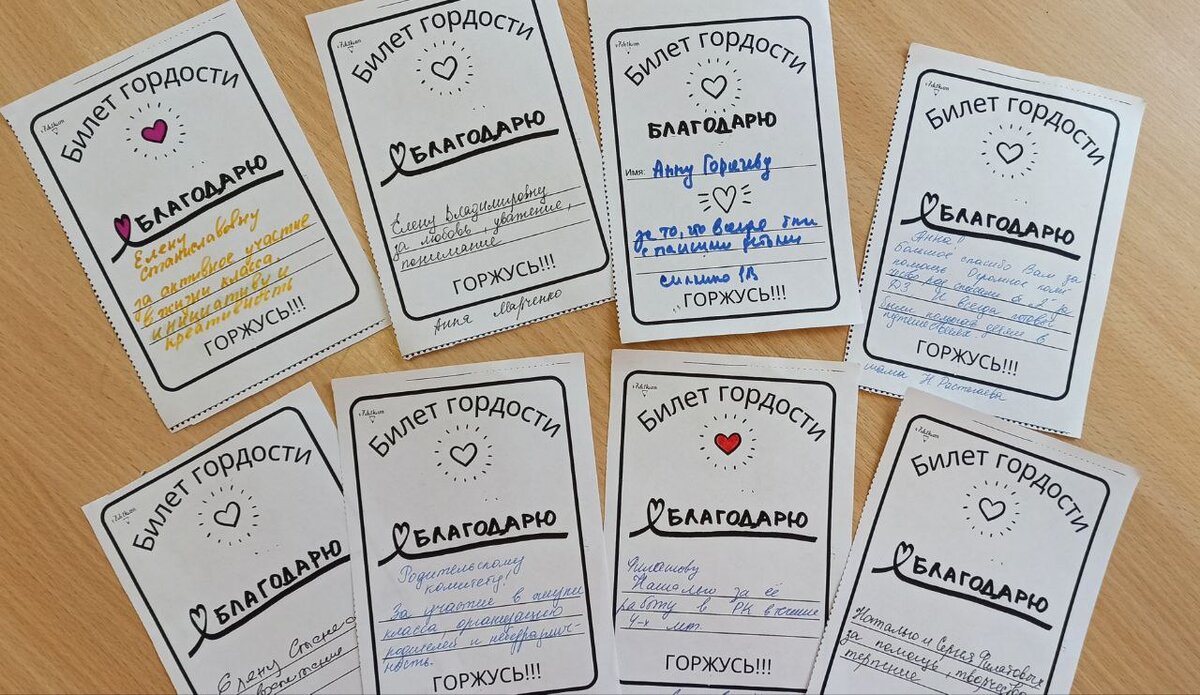 Билет гордости
БЛАГОДАРЮ
Елену
Станиславовну
за активное участие
в жизни класса,
инициативу и
креативность
ГОРЖУСЬ!!!
Билет гордости
БЛАГОДАРЮ
Елену Владимировну
за любовь, уважение,
понимание
ГОРЖУСЬ!!!
Анна Марченко
Билет гордости
БЛАГОДАРЮ
Имя: Анну Горячеву
за то, что всегда
с нашими детьми
1В
ГОРЖУСЬ!!!
Билет гордости
БЛАГОДАРЮ
Анна!
Большое спасибо Вам за
помощь. Огромное
ДЗ И всегда готовы
ГОРЖУСЬ!!!
мама Н. Растегаева
Билет гордости
БЛАГОДАРЮ
Елену
Билет гордости
БЛАГОДАРЮ
Родительскому
комитету!
За участие в жизни
класса, организацию
родителей и
ность.
ГОРЖУСЬ!!!
Билет гордости
БЛАГОДАРЮ
Филатову
Наталью за её
работу в РК в течение
4-х лет
ГОРЖУСЬ!!!
Билет гордости
БЛАГОДАРЮ
Наталью и Сергея Филатовых
за помощь, творчество
терпение